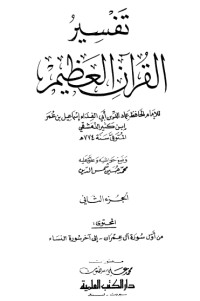 تفسير
القرآن العظيم
للإمام الحافظ عماد الدين أبي الفداء إسماعيل بن عمر
ابن كثير الدمشقي
المتوفى سنة ٧٧٤هـ
وضع حواشيه وعلق عليه
محمد حسين شمس الدين
الجزء الثاني
المحتوى:
من أول سورة آل عمران - إلى آخر سورة النساء
منشورات
محمد علي بيضون
دار الكتب العلمية